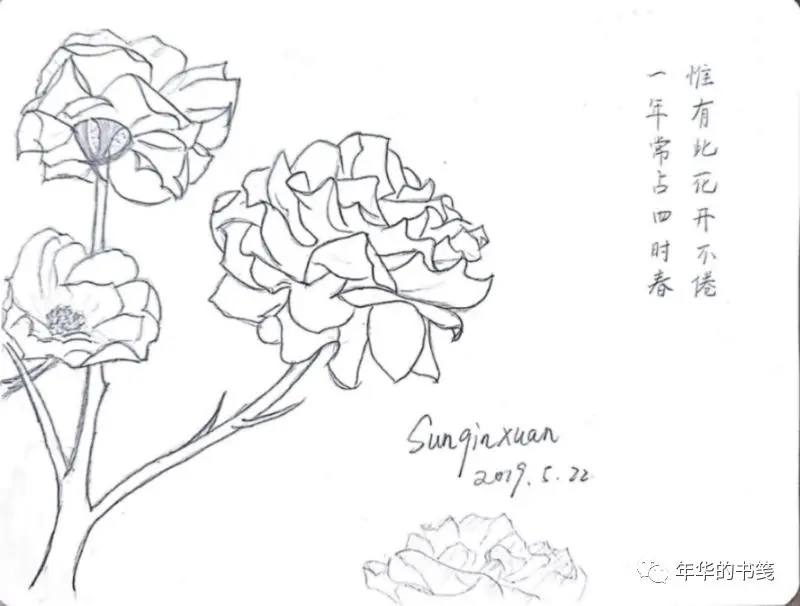 惟有此花开不倦
一年常占四时春
Sunqinxuan
2019.5.22
年华的书笺